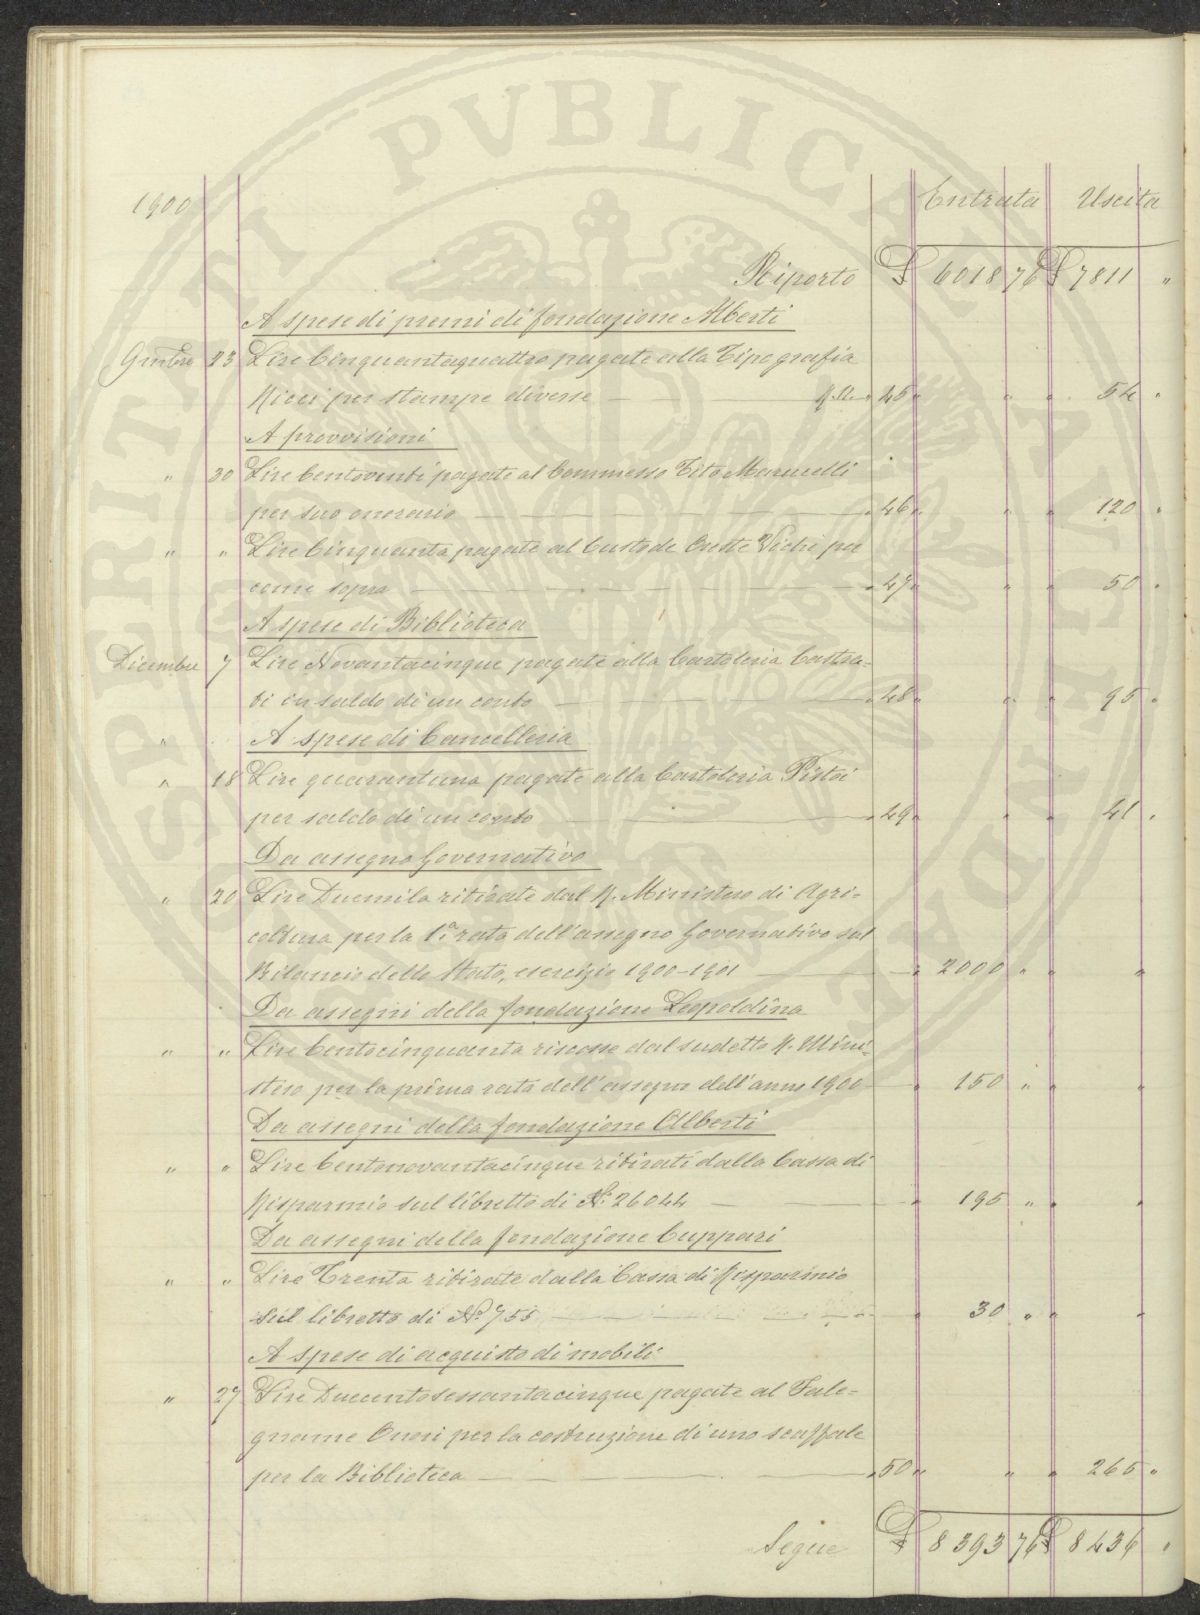 PROSPERITATI PVBLICAE AVGENDAE
1900 Entrata Uscita
Riporto £ 6018 76 £ 7811 "
A spese di premi di fondazione Alberti
9mbre 23 Lire Cinquantaquattro pagate alla Tipografia
Ricci per stampe diverse — — " 45 " " " 54 "
A provvisioni
" 30 Lire Centoventi pagate al Commesso Tito Marucelli
per suo onorario — " 46 " " " 120 "
" " Lire Cinquanta pagate al Custode Oreste Vietri per
come sopra — " 47 " " " 50 "
A spese di Biblioteca
Dicembre 7 Lire Novantacinque pagate alla Cartoleria Castra-
ti in saldo di un conto — " 48 " " " 95 "
" A spese di Cancelleria
" 18 Lire quarantuna pagate alla Cartoleria Pistoi
per saldo di un conto — " 49 " " " 41 "
Da assegno Governativo
" 20 Lire Duemila ritirate dal R. Ministero di Agri-
coltura per la 1.a rata dell'assegno Governativo sul
Bilancio dello Stato, esercizio 1900-1901 — " 2000 " " "
Da assegni della fondazione Leopoldina
" " Lire Centocinquanta riscosse dal sudetto R. Mini-
stero per la prima rata dell'assegno dell'anno 1900 — " 150 " " "
Da assegni della fondazione Alberti
" " Lire Centonovantacinque ritirati dalla Cassa di
Risparmio sul libretto di N.o 26044 — " 195 " " "
Da assegni della fondazione Cuppari
" " Lire Trenta ritirate dalla Cassa di Risparmio
sul libretto di No. 755 — " 30 " " "
A spese di acquisto di mobili
" 27 Lire Duecentosessantacinque pagate al Fale-
gname Cuori per la costruzione di uno scaffale
per la Biblioteca — " 50 " " " 265 "
Segue £ 8393 76 £ 8436 "